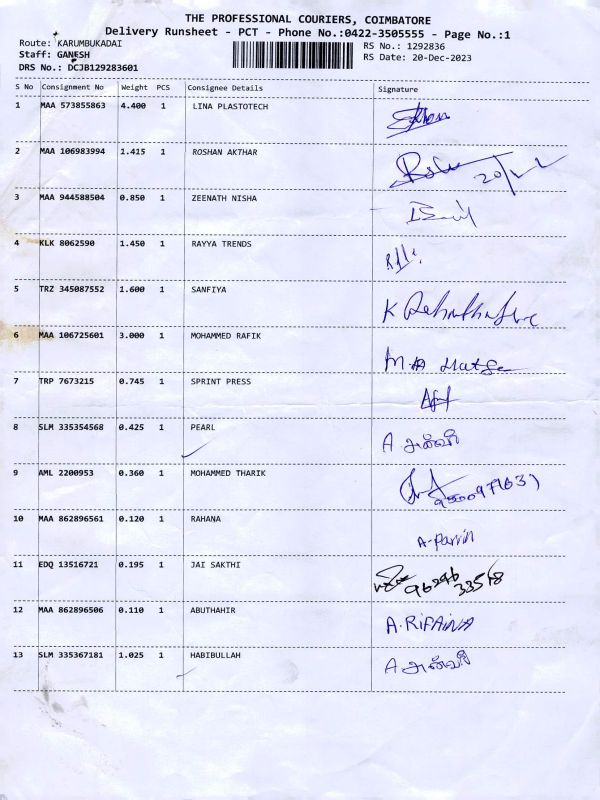 THE PROFESSIONAL COURIERS, COIMBATORE
Delivery Runsheet - PCT - Phone No.:0422-3505555 - Page No.:1
Route: KARUMBUKADAI
RS No.: 1292836
Staff: GANESH
RS Date: 20-Dec-2023
DRS No.: DCJB129283601
S No Consignment No Weight PCS Consignee Details Signature
1 MAA 573855863 4.400 1 LINA PLASTOTECH
2 MAA 106983994 1.415 1 ROSHAN AKTHAR
20/
3 MAA 944588504 0.850 1 ZEENATH NISHA
4 KLK 8062590 1.450 1 RAYYA TRENDS
5 TRZ 345087552 1.600 1 SANFIYA
K
6 MAA 106725601 3.000 1 MOHAMMED RAFIK
7 TRP 7673215 0.745 1 SPRINT PRESS
8 SLM 335354568 0.425 1 PEARL
A அன்வர்
9 AML 2200953 0.360 1 MOHAMMED THARIK
10 MAA 862896561 0.120 1 RAHANA
A-Parvin
11 EDQ 13516721 0.195 1 JAI SAKTHI
96296
33518
12 MAA 862896506 0.110 1 ABUTHAHIR
A.RIFAINA
13 SLM 335367181 1.025 1 HABIBULLAH
A அன்வர்